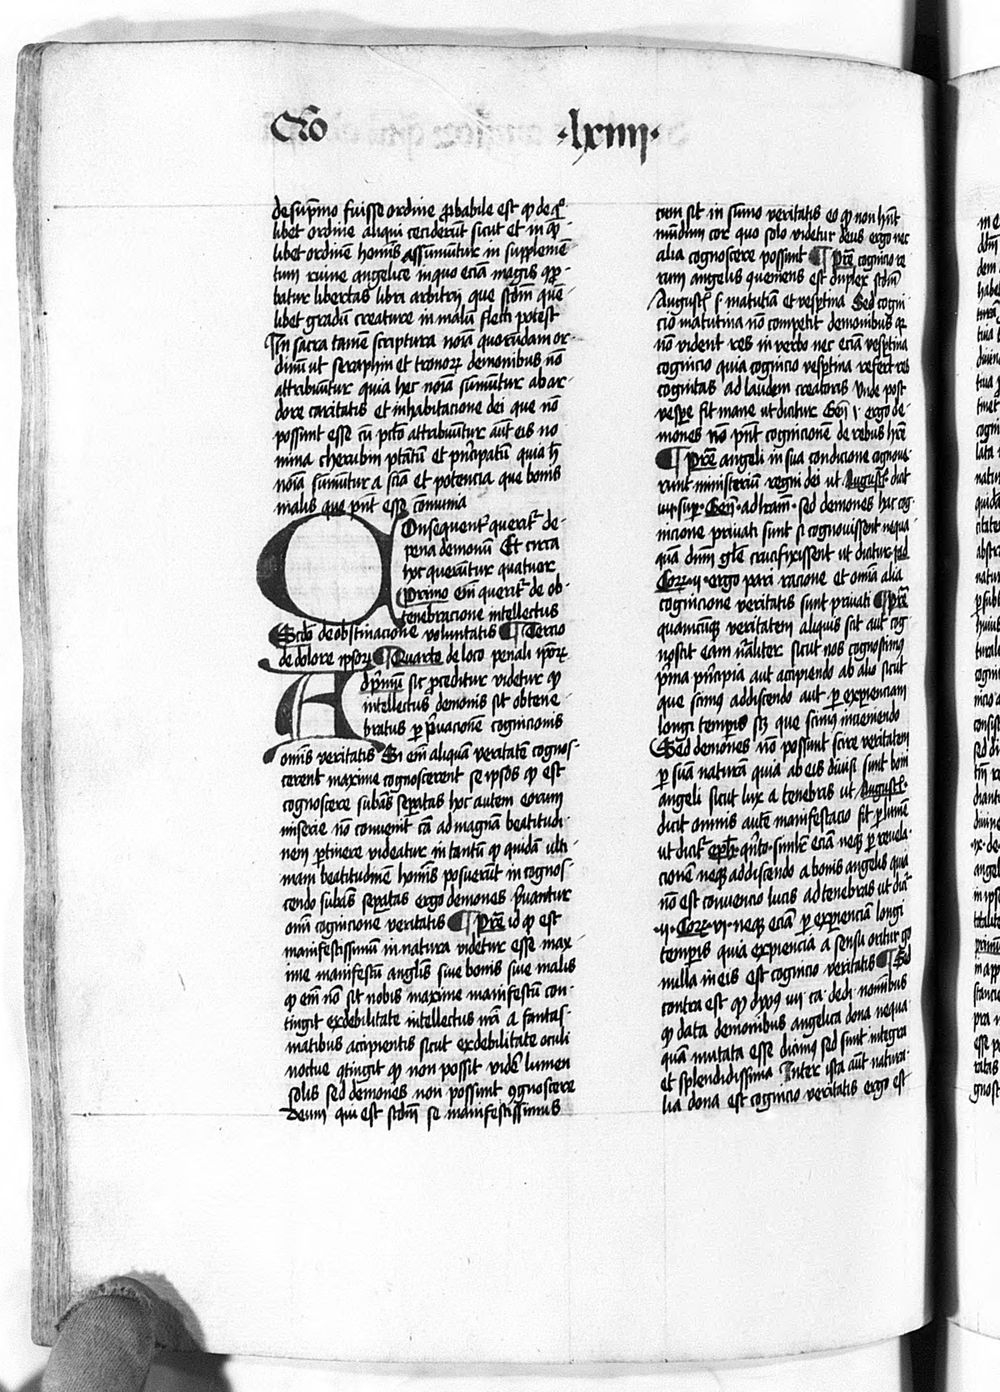 Qo ·lxiiij·
de sup̄mo fuisse ordine ꝓbabile est ꝙ de qͣ
libet ordine aliqui ceciderūt sicut et in qͣ
libet ordinē hoīnīs assumūtur in supplemē
tum ruine angelice in quo eciā magis ꝓ
batur libertas libri arbitrij que scdm̄ quē
libet gradū creature in malū flecti potest
In sacra tamē scriptura noīa quorūdam or
dinū ut seraphin et tronoꝝ demonibus nō
attribuūtur quia hec noīa sumūtur ab ar
dore caritatis et inhabitacione dei que nō
possunt esse cū pctō attribuūtur aūt eis no
mina cherubin ptātū et pͥncipatū quia h̄
noīa sumūtur a sciā et potencia que bonis
malis que pn̄t esse cōmunia
COnsequent᷑ querit᷑ de
pena demonū Et circa
hoc querūtur quatuor
Primo em̄ querit᷑ de ob
tenebracione intellectus
Scdo de obstinacione voluntatis ¶ Tercio
de dolore ipsoꝝ ¶ Quarte de loco penali ip̄oꝝ
AD pͥmū sic proceditur videtur ꝙ
intellectus demonis sit obtene
bratus ꝑ pͥuacionē cognicionis
omīs veritatis Si em̄ aliquā veritatē cognos
cerent maxime cognoscerent se ipsos ꝙ est
cognoscere subās seꝑatas hoc autem eorum
miserie nō conuenit cū ad magnā beatitudi
nem ꝑtinere videatur in tantū ꝙ quidā ulti
mam beatitudinē hominis posuerūt in cognos
cendo subās seꝑatas ergo demones pͥuantur
omī cognicione veritatis ¶ Pret̄ id ꝙ est
manifestissimū in natura videtur esse max
ime manifestū angelis siue bonis siue malis
ꝙ em̄ nō sit nobis maxime manifestū con
tingit ex debilitate intellectus nrī a fantas
matibus accipientis sicut ex debilitate oculi
noctue ꝯtingit ꝙ non possit videre lumen
solis sed demones non possunt ꝯgnoscere
deum qui est scdm̄ se manifestissimus
cum sit in sūmo veritatis eo ꝙ non hn̄t
mūdum cor quo solo videtur deus ergo nec
alia cognoscere possunt ¶ Pret̄ cognicio re
rum angelis queniens est duplex scdm̄
August᷑ s· matutīa et vesꝑtina Sed cogni
cio matutina nō competit demonibus qꝛ
nō vident res in verbo nec eciam vesꝑtina
cognicio quia cognicio vesꝑtina refert res
cognitas ad laudem creatoris Unde post
vespe᷑ fit mane ut dicitur Gen̄ i· ergo de
mones nō pn̄t cognicionē de rebus hr̄e
¶ Pret̄ angeli in sua condicione cognoue
runt ministeriū regni dei ut August᷑ dicit
iiij· sup· Gen̄· ad lrām· sed demones hac cog
nicione priuati sunt si cognouissent nequa
quā dn̄m glē crucifixissent ut dicitur pad
Corꝝ· ij· ergo pari racione et omīa alia
cognicione veritatis sunt priuati ¶ Pret̄
quamcūqꝫ veritatem aliquis scit aut cog
noscit eam nāliter sicut nos cognoscimꝰ
pͥma pͥncipia aut accipiendo ab alio sicut
que scimꝰ addiscendo aut ꝑ exꝑienciam
longi temporis sicut que scimꝰ inueniendo
Sed demones nō possunt scire veritatem
ꝑ suā naturā quia ab eis diuisi sunt boni
angeli sicut lux a tenebras ut August᷑·
dicit omnis aute᷑ manifestacio fit ꝑ lumē
ut dicit᷑ eph̄· qͥnto· similr̄ eciā neqꝫ ꝑ reuela
cionē neqꝫ addiscendo a bonis angelis quia
nō est conuencio lucis ad tenebras ut dicit᷑
·ij· Corꝝ· vi· neqꝫ eciā ꝑ exꝑienciā longi
temꝑis quia exꝑiencia a sensu oritur go
nulla in eis est cognicio veritatis ¶ Sed
contra est ꝙ dyoꝰ iiij ca· de di· nomībus
ꝙ data demonibus angelica dona nequa
quā mutata esse dicimꝰ sed sunt integra
et splendidissima Inter ista aūt natura
lia dona est cognicio veritatis ergo est